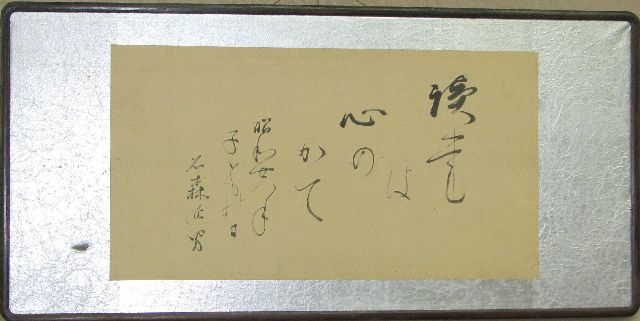 読書
は
心の
かて
昭和廿八年
子どもの日
石森延男